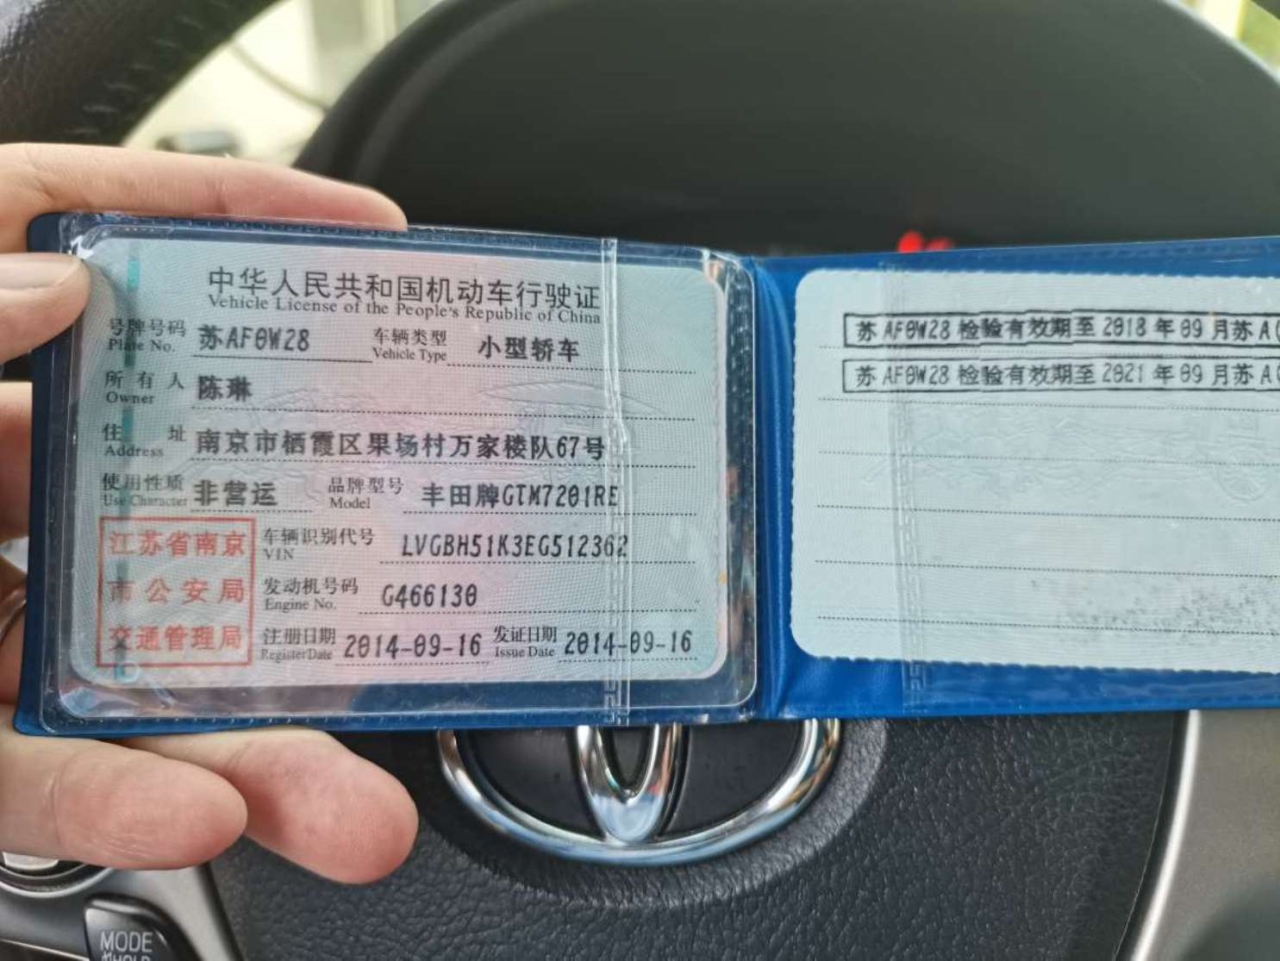 中华人民共和国机动车行驶证
Vehicle License of the People's Republic of China
号牌号码 苏AF0W28 车辆类型 小型轿车
Plate No. Vehicle Type
所有人 陈琳
Owner
住址 南京市栖霞区果场村万家楼队67号
Address
使用性质 非营运 品牌型号 丰田牌GTM7201RE
Use Character Model
江苏省南京 车辆识别代号 LVGBH51K3EG512362
VIN
市公安局 发动机号码 G466130
Engine No.
交通管理局 注册日期 2014-09-16 发证日期 2014-09-16
Register Date Issue Date
苏AF0W28 检验有效期至 2018 年 09 月苏A
苏AF0W28 检验有效期至 2021 年 09 月苏A
MODE
HOLD